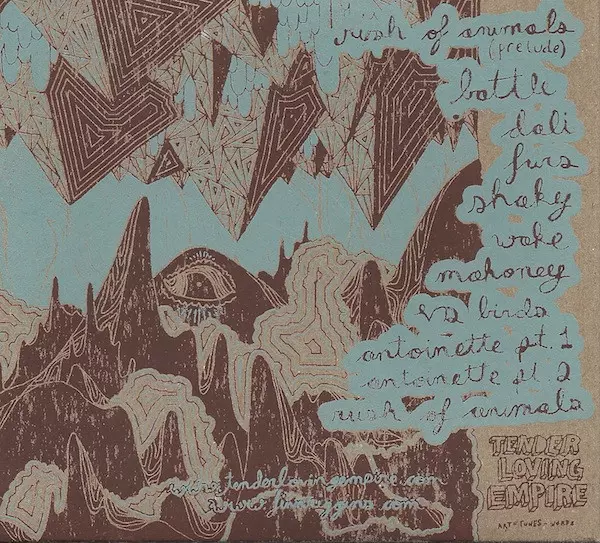 rush of animals
(prelude)
battle
dali
furs
shaky
wake
mahoney
vs birds
antoinette pt. 1
antoinette pt. 2
rush of animals
www.tenderlovingempire.com
www.
TENDER
LOVIING
EMPIRE
ART - TUNES -